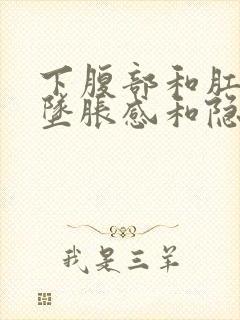 下腹部和肛
坠胀感和隐
我是三羊